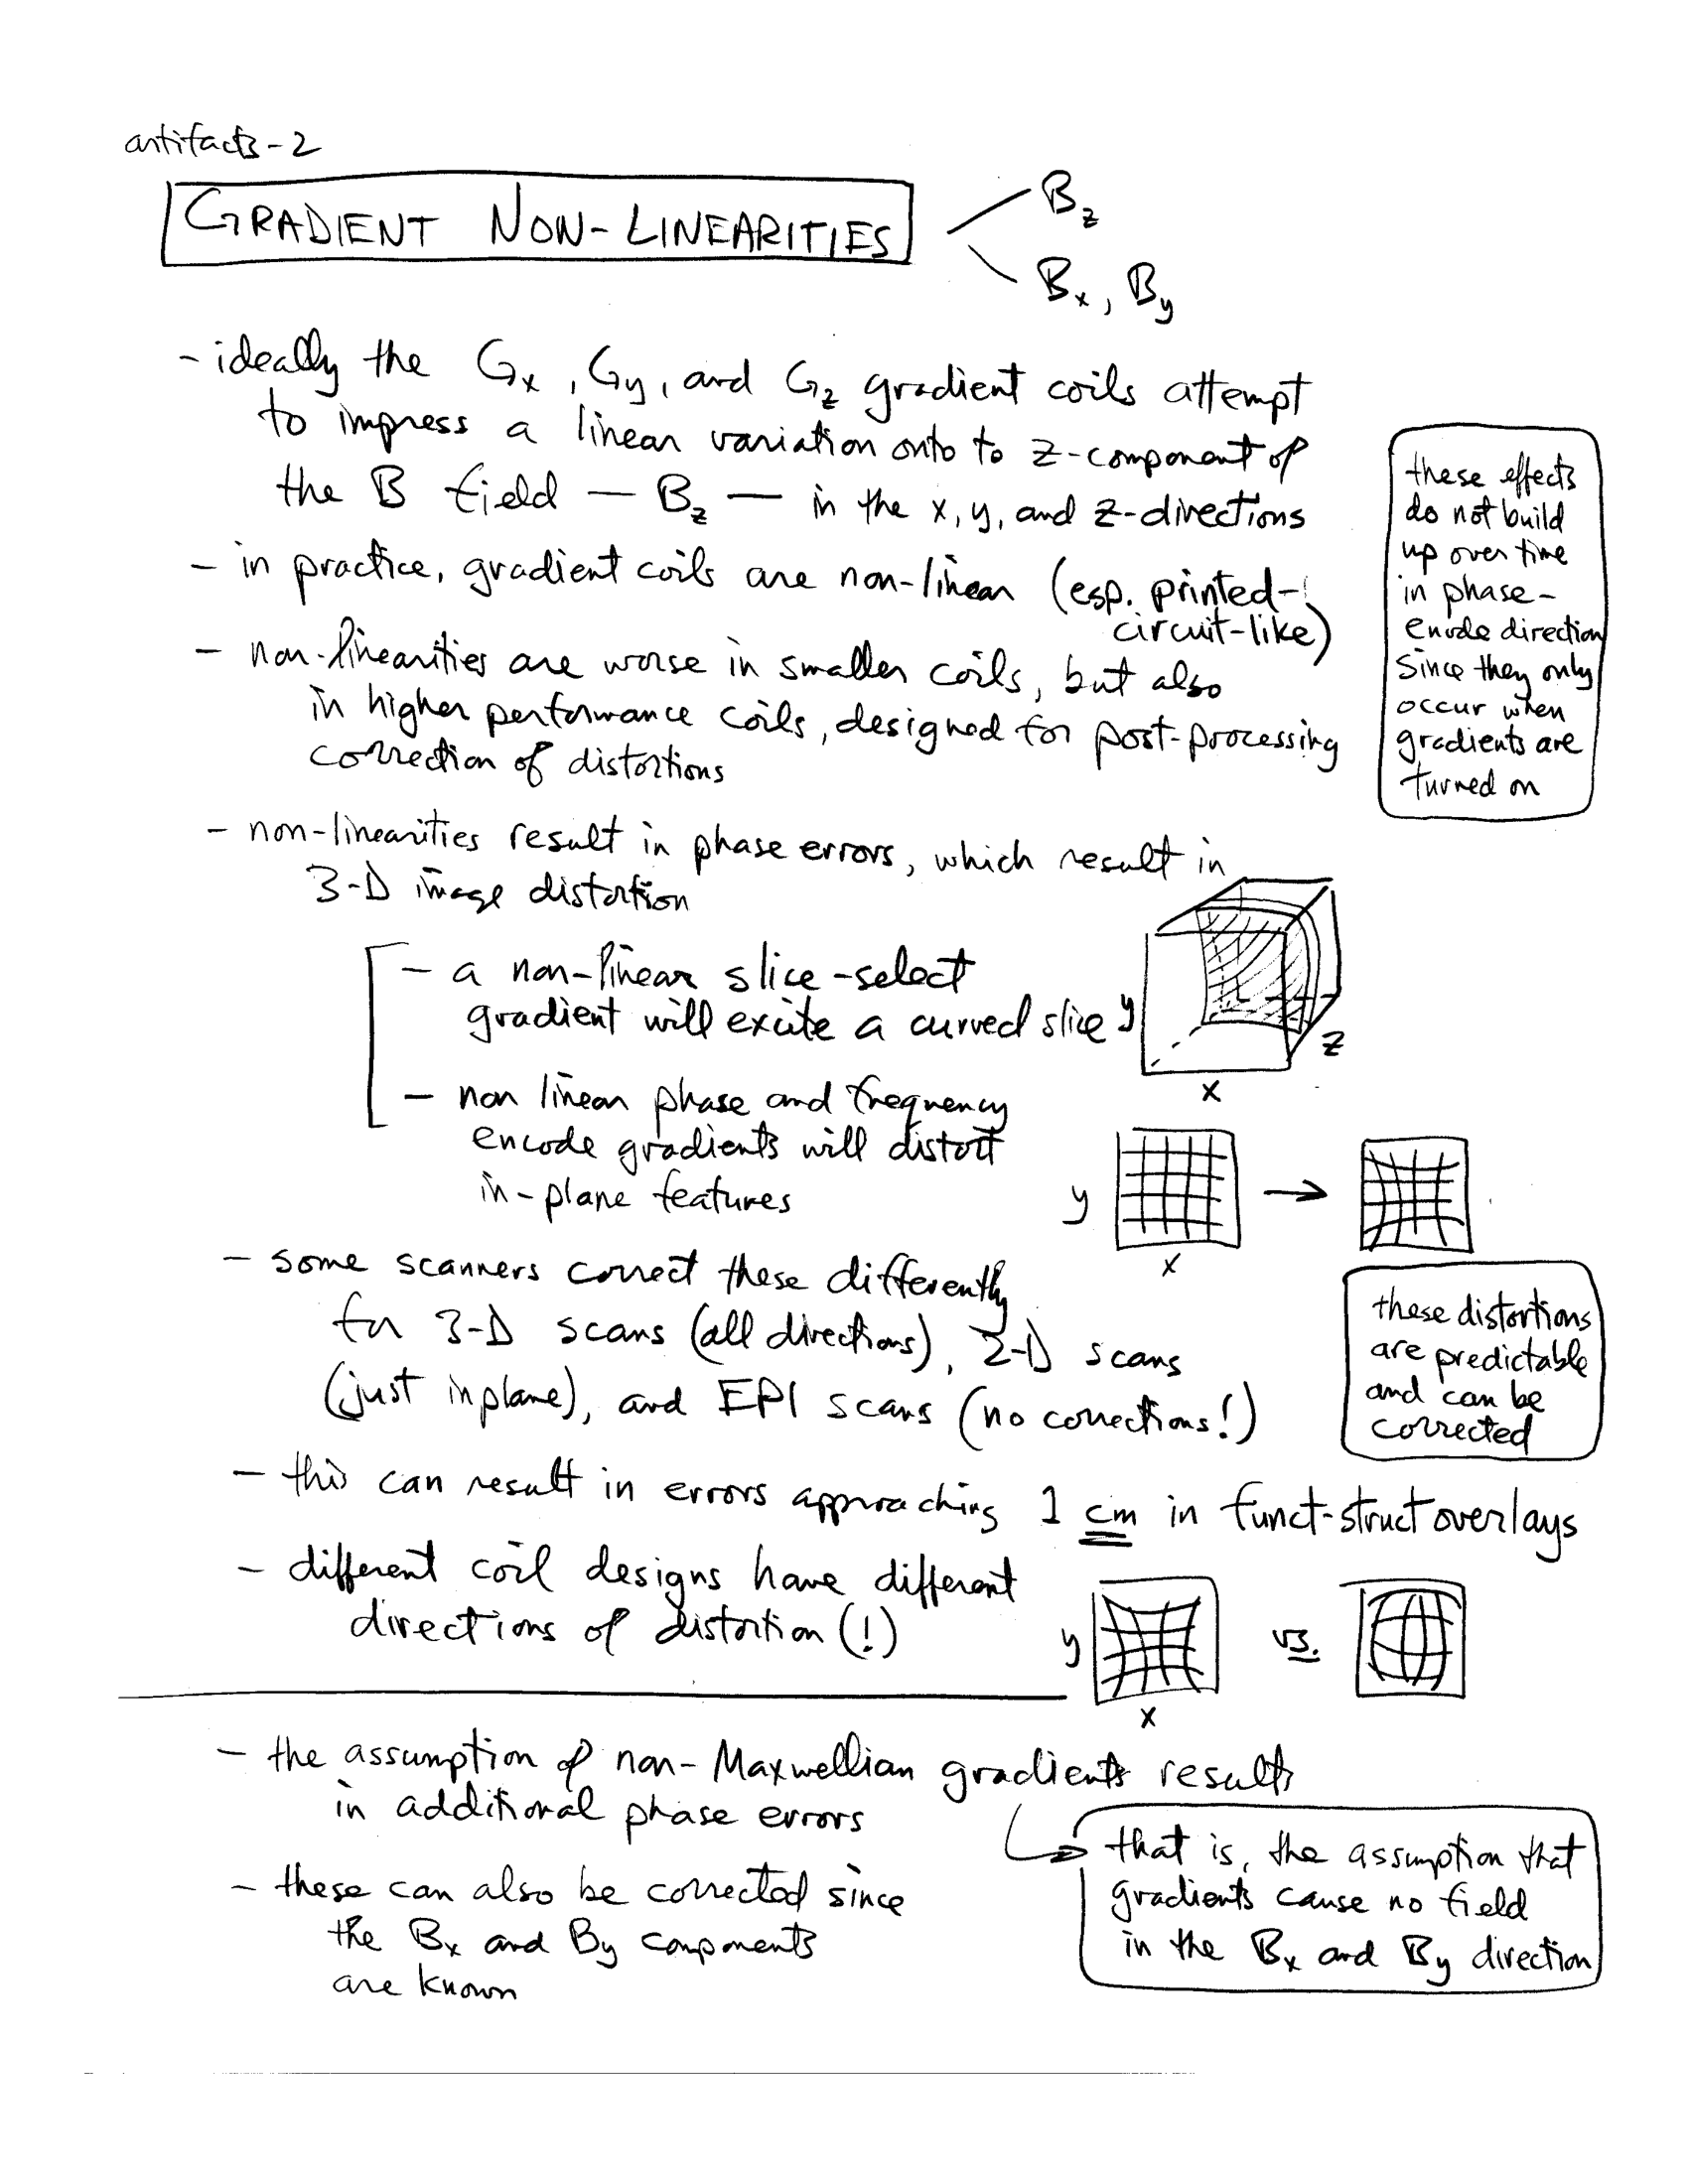 artifacts-2
GRADIENT NON-LINEARITIES
Bz
Bx, By
- ideally the Gx, Gy, and Gz gradient coils attempt
to impress a linear variation onto to z-component of
the B field — Bz — in the x, y, and z-directions
- in practice, gradient coils are non-linear (esp. printed-
circuit-like)
- non-linearities are worse in smaller coils, but also
in higher performance coils, designed for post-processing
correction of distortions
these effects
do not build
up over time
in phase-
encode direction
since they only
occur when
gradients are
turned on
- non-linearities result in phase errors, which result in
3-D image distortion
- a non-linear slice-select
gradient will excite a curved slice
y
z
x
- non linear phase and frequency
encode gradients will distort
in-plane features
y
x
- some scanners correct these differently
for 3-D scans (all directions), 2-D scans
(just inplane), and EPI scans (no corrections!)
these distortions
are predictable
and can be
corrected
- this can result in errors approaching 1 cm in funct-struct overlays
- different coil designs have different
directions of distortion (!)
y
x
vs.
- the assumption of non-Maxwellian gradients results
in additional phase errors
that is, the assumption that
gradients cause no field
in the Bx and By direction
- these can also be corrected since
the Bx and By components
are known